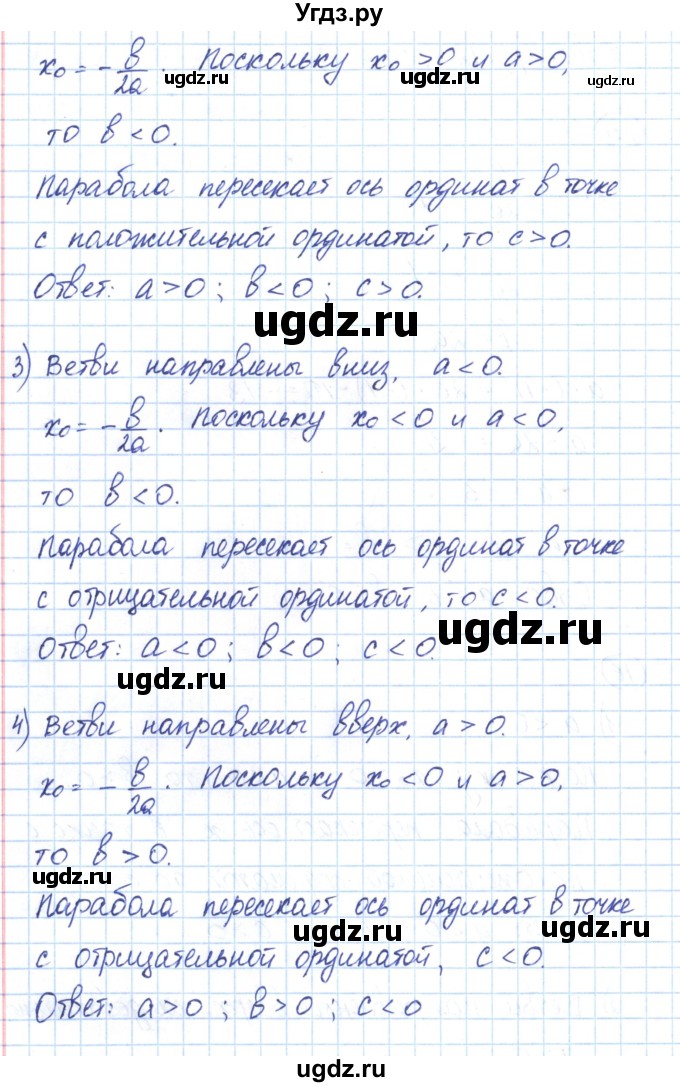 Угдз.ру
x₀ = - в/2a. Поскольку x₀ > 0 и a > 0,
ugdz.ru ugdz.ru ugdz.ru
то в < 0.
Парабола пересекает ось ординат в точке
с положительной ординатой, то c > 0.
Ответ: a > 0 ; в < 0 ; c > 0.
ugdz.ru
3) Ветви направлены вниз, a < 0.
x₀ = - в/2a. Поскольку x₀ < 0 и a < 0,
то в < 0.
Парабола пересекает ось ординат в точке
с отрицательной ординатой, то c < 0.
ugdz.ru
Ответ: a < 0 ; в < 0 ; c < 0.
ugdz.ru
4) Ветви направлены вверх, a > 0.
x₀ = - в/2a. Поскольку x₀ < 0 и a > 0,
то в > 0.
ugdz.ru
Парабола пересекает ось ординат в точке
ugdz.ru ugdz.ru
с отрицательной ординатой, c < 0.
Ответ: a > 0 ; в > 0 ; c < 0
ugdz.ru